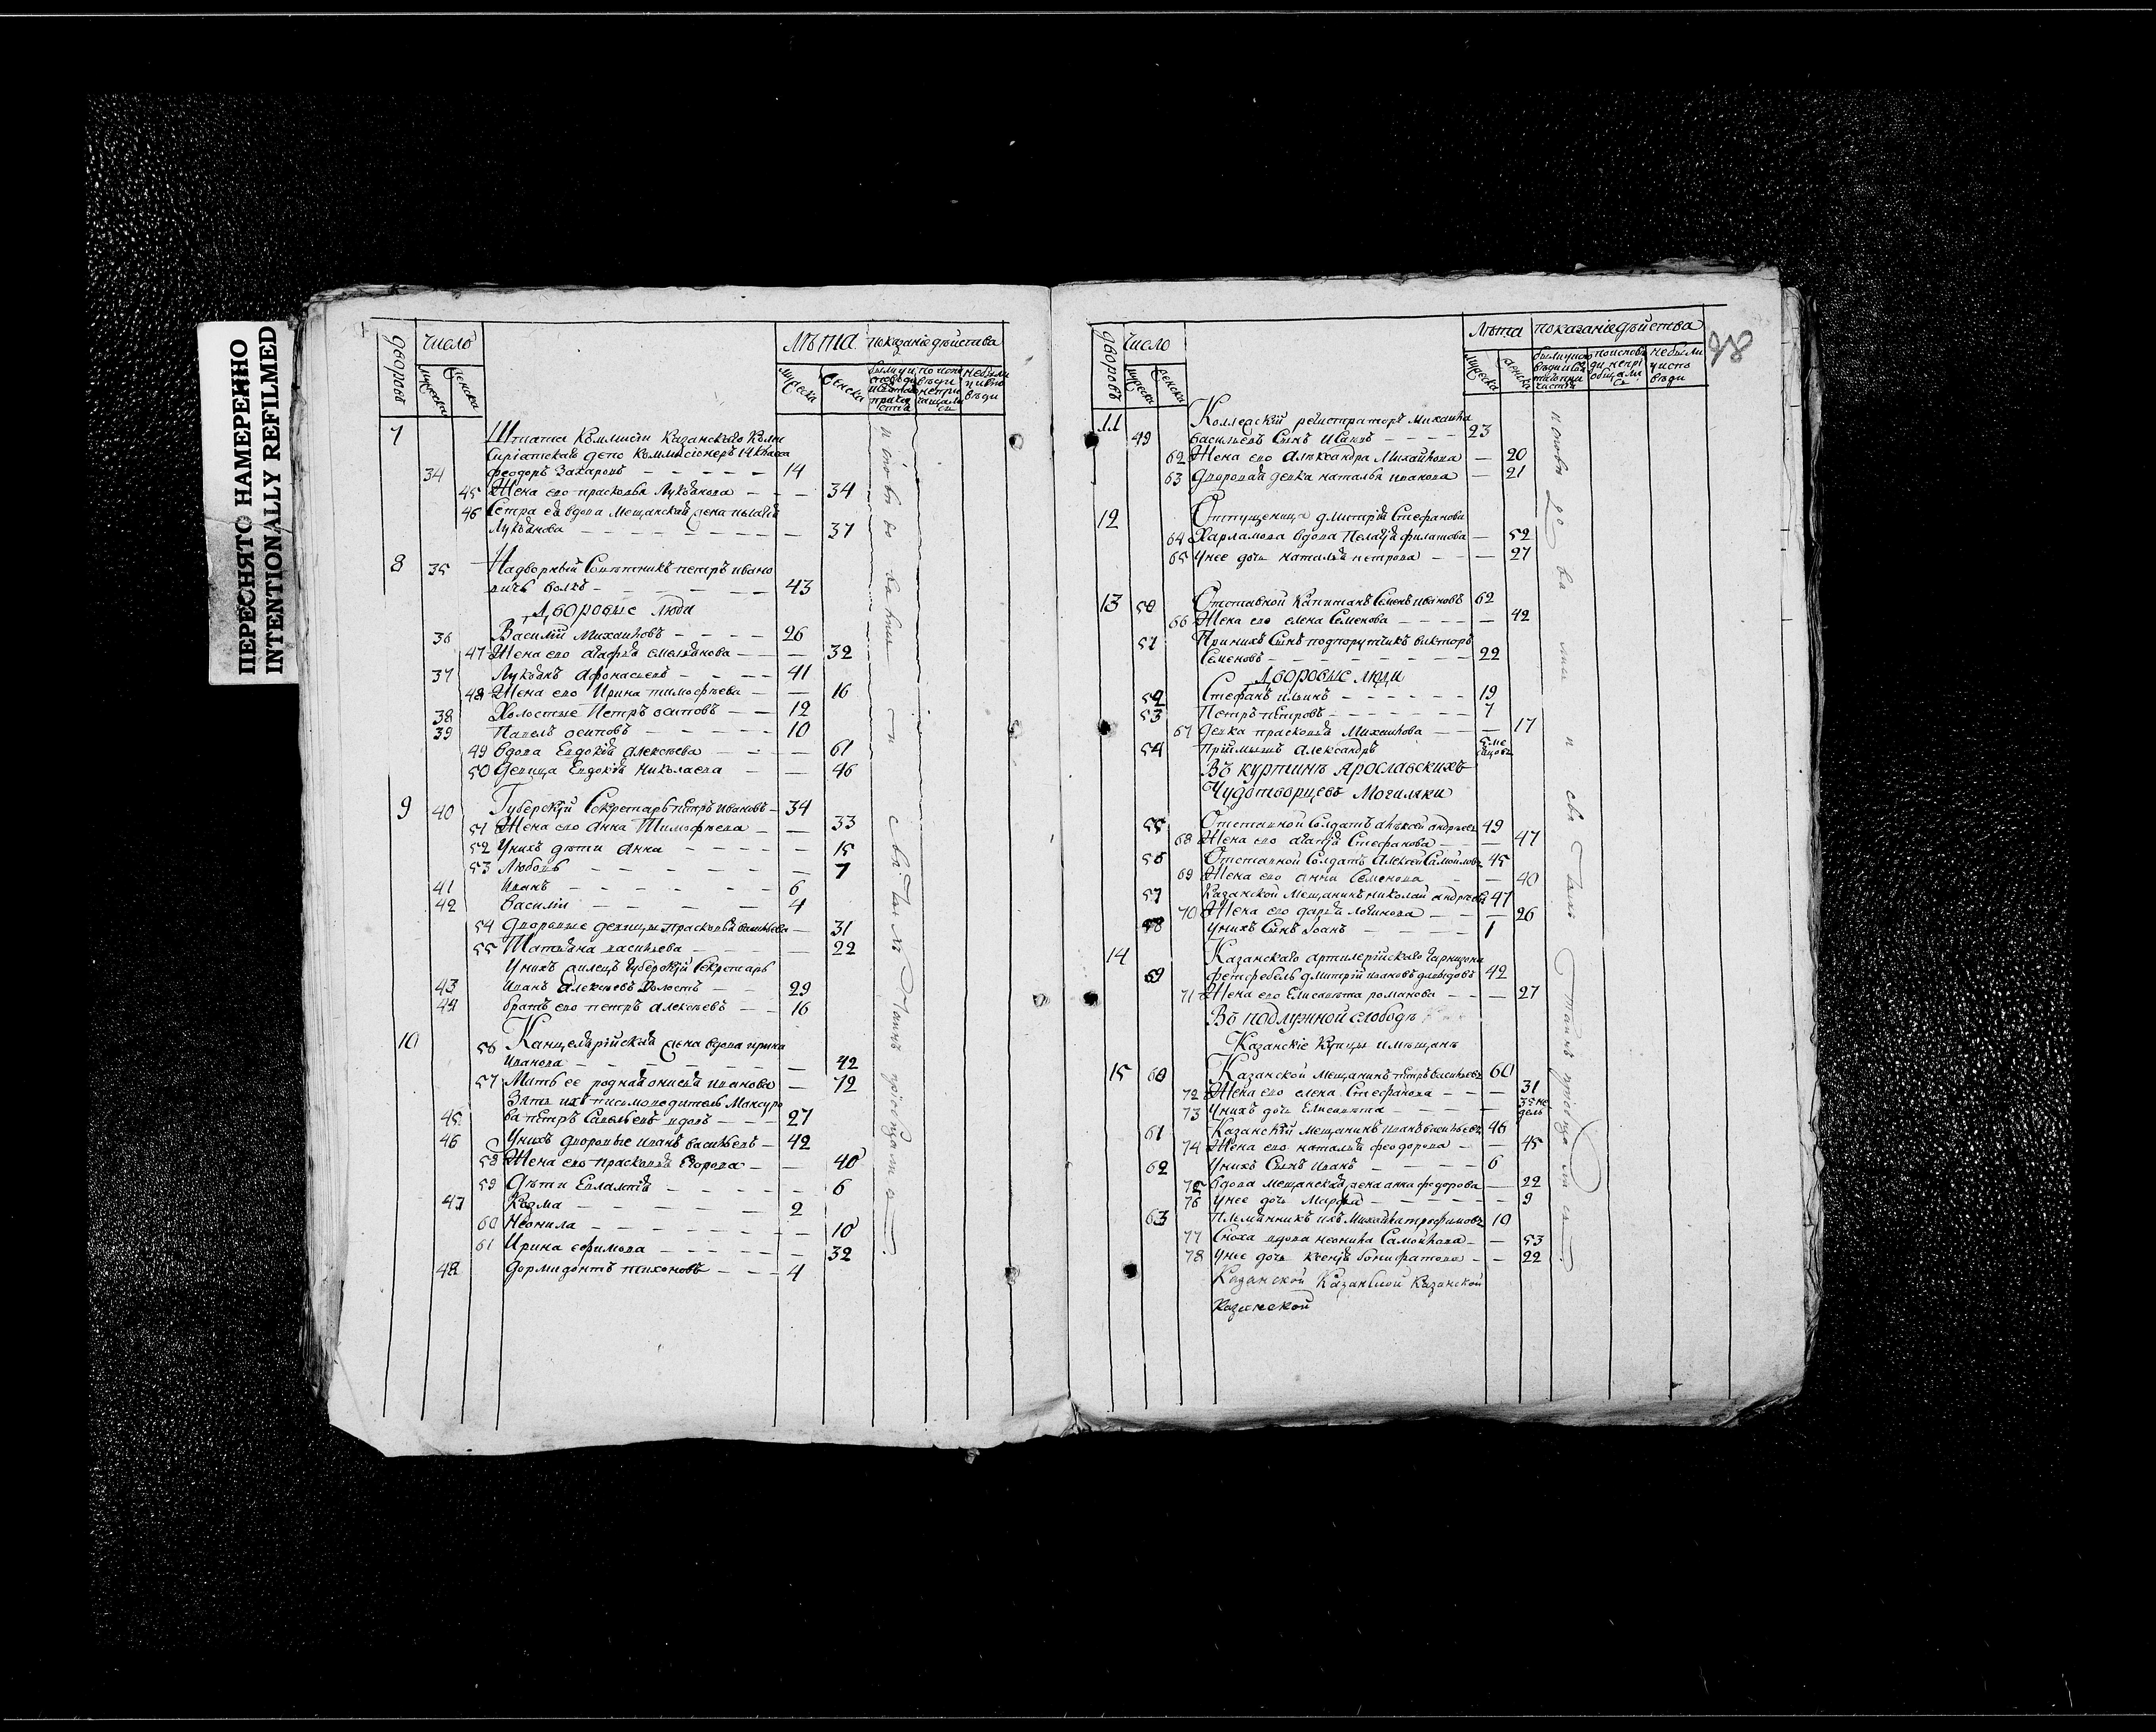 ПЕРЕСНЯТО НАМЕРЕННО
INTENTIONALLY REFILMED
дворовъ
число
мужеска
женска
лѣта
показаніе дѣйства
мужеска
женска
7
Штата Коммисіи Казанскаго Комми
феодоръ Захаровъ
34
14
45 Жена его прасковья Лукоянова 34
46 Сестра ея вдова Мещанская жена пелагея
Лукоянова 37
8 35 Надворный Совѣтникъ петръ ивано
вичь 43
Дворовые люди
36 Василій Михаиловъ 26
47 Жена его агафья емельянова 32
37 Лукоянъ Афонасьевъ 41
48 Жена его Ирина тимофѣева 16
38 Холостые Петръ осиповъ 12
39 Павелъ осиповъ 10
49 вдова Евдокія Алексѣева 61
50 девица Евдокія Николаева 46
9 40 Губерскій Секретарь петръ ивановъ 34
51 Жена его Анна Тимофѣева 33
52 Унихъ дѣти Анна 15
53 Любовь 7
41 Иванъ 6
42 Василіи 4
54 дворовые девицы прасковья васильева 31
55 Татьяна васильева 22
Унихъ Губерскій Секретарь
43 иванъ Алексѣевъ Холостъ 29
44 братъ его петръ Алексѣевъ 16
10 56 Канцелярійская жена вдова ирина
иванова 42
57 Мать ее родная онисья иванова 72
Зять ихъ письмоводитель
45 петръ Савельевъ вдовъ 27
46 Унихъ дворовые иванъ васильевъ 42
58 Жена его прасковья Егорова 40
59 Дѣти Евлампія 6
47 Козма 2
60 Неонила 10
61 Ирина ефимова 32
48 Дормидонтъ тихоновъ 4
98
дворовъ
число
мужеска
женска
лѣта
показаніе дѣйства
мужеска
женска
11 Коллежскій регистраторъ Михаила
49 васильевъ Сынъ 23
62 Жена его Александра Михайлова 20
63 дворовая девка наталья иванова 21
12 Отпущеница дмитрія Стефанова
64 Харламова вдова Пелагѣя филатова 52
65 Унее дочь наталья петрова 27
13 50 Отставной Капитанъ Семенъ ивановъ 62
66 Жена его елена Семенова 42
51 При нихъ Сынъ подпорутчикъ викторъ
Семеновъ 22
Дворовые люди
52 Стефанъ ильинъ 19
53 Петръ петровъ 7
67 девка прасковья Михаилова 17
54 Пріимышъ Александръ 5 ме
сяцовъ
Въ куртинѣ Ярославскихъ
Чудотворцевъ Могиляки
55 Отставной Солдатъ андреевъ 49
68 Жена его Стефанова 47
56 Отставной Солдатъ Алексей Самойловъ 45
69 Жена его анна Семенова 40
57 Казанской Мещанинъ николай андреевъ 47
70 Жена его дарья логинова 26
58 Унихъ Сынъ Іоанъ 1
14 Казанскаго артилерійскаго гарнизона
59 фетфебель дмитрій ивановъ 42
71 Жена его Елисавета романова 27
Въ подлужной слободѣ
Казанскіе Купцы и мѣщанѣ
15 60 Казанской мещанинъ петръ васильевъ 60
72 Жена его елена Стефанова 31
73 Унихъ дочь Елисавета 35 не
дель
61 Казанскій мещанинъ иванъ васильевъ 46
74 Жена его наталья феодорова 45
62 Унихъ Сынъ иванъ 6
75 вдова мещанская жена анна федорова 22
76 Унее дочь Марфа 9
63 Племянникъ ихъ Михаила трофимовъ 10
77 Сноха вдова неонила Самойлова 53
78 Унее дочь Ксенія бонифатова 22
Казанской Казанской Казанской
Казанской